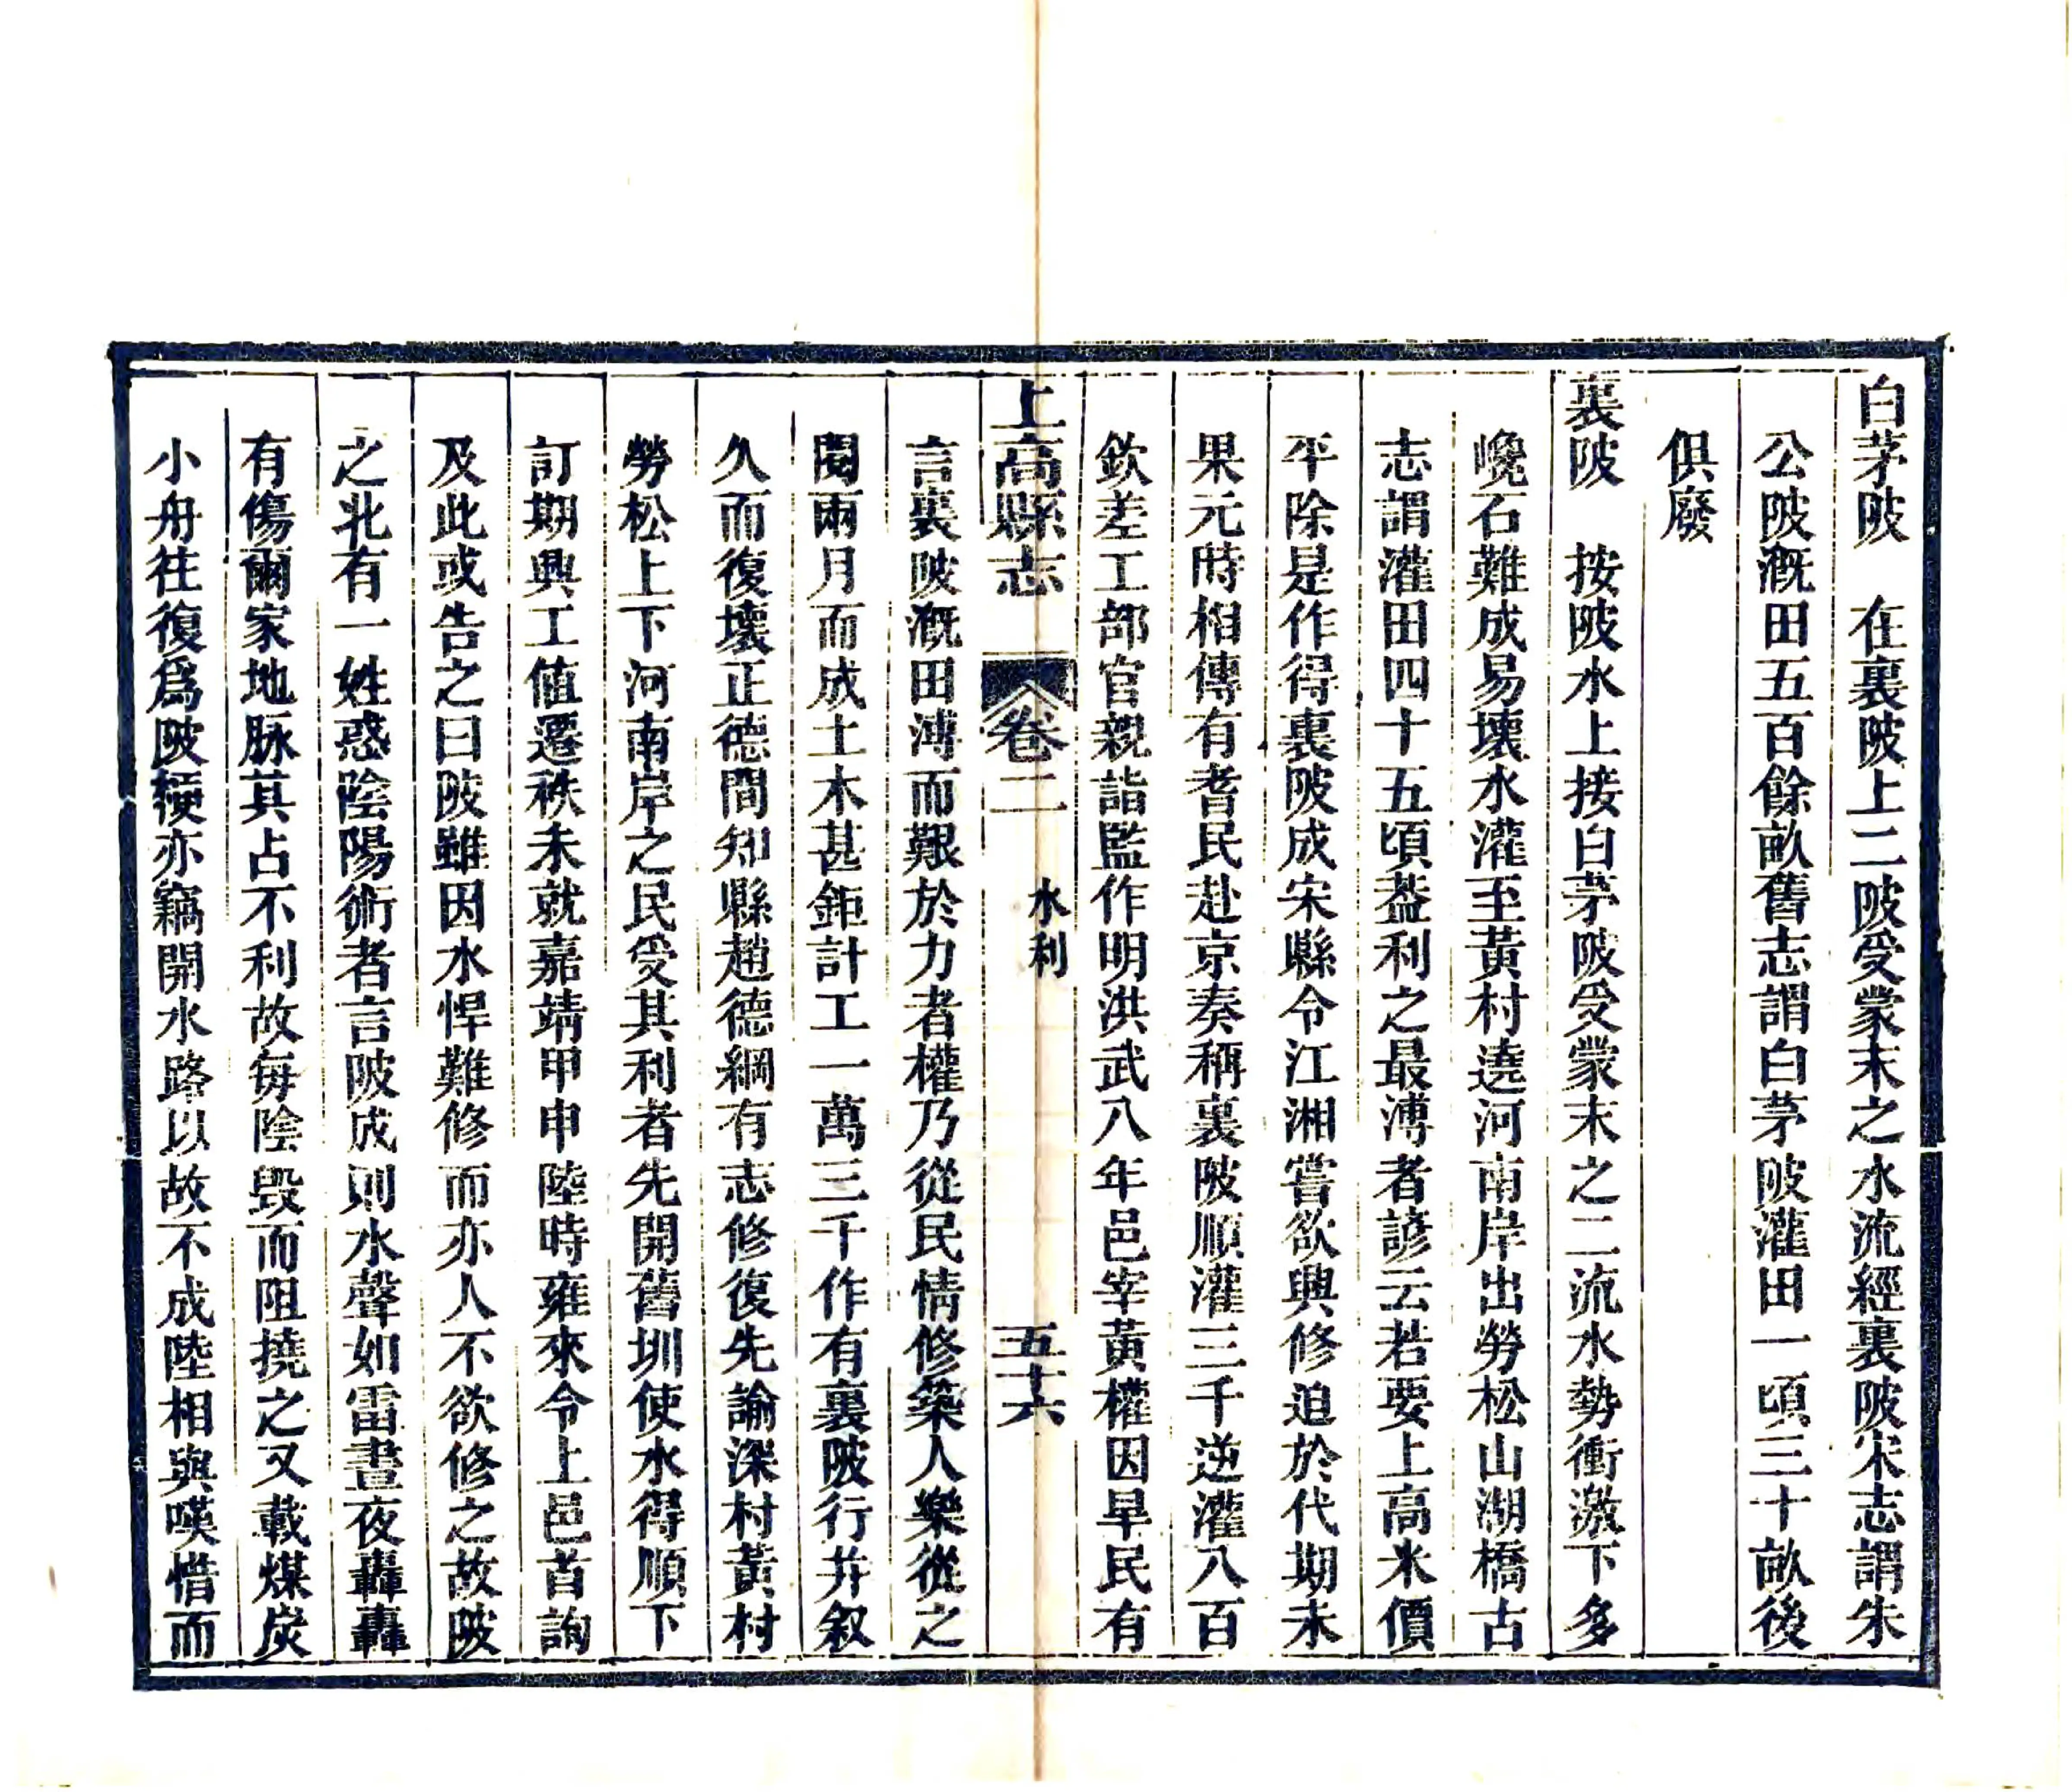 白茅陂　在裏陂上二陂受蒙末之水流經裏陂宋志謂朱
公陂溉田五百餘畝舊志謂白茅陂灌田一頃三十畝後
俱廢
裏陂　按陂水上接白茅陂受蒙末之二流水勢衝激下多
巉石難成易壞水灌至黃村遶河南岸出勞松山湖橋古
志謂灌田四十五頃葢利之最溥者諺云若要上高米價
平除是作得裏陂成宋縣令江湘嘗欲興修迫於代期未
果元時相傳有耆民赴京奏稱裏陂順灌三千逆灌八百
欽差工部官親詣監作明洪武八年邑宰黃權因旱民有
上高縣志　卷二　水利　五十六
言裏陂溉田溥而艱於力者權乃從民情修築人樂從之
閱兩月而成土木甚鉅計工一萬三千作有裏陂行并叙
久而復壞正德間知縣趙德綱有志修復先諭深村黃村
勞松上下河南岸之民受其利者先開舊圳使水得順下
訂期興工值遷秩未就嘉靖甲申陸時雍來令上邑首詢
及此或告之曰陂雖因水悍難修而亦人不欲修之故陂
之北有一姓惑陰陽術者言陂成則水聲如雷晝夜轟轟
有傷爾家地脉其占不利故每陰毀而阻撓之又載煤炭
小舟徃復爲陂梗亦竊開水路以故不成陸相與嘆惜而